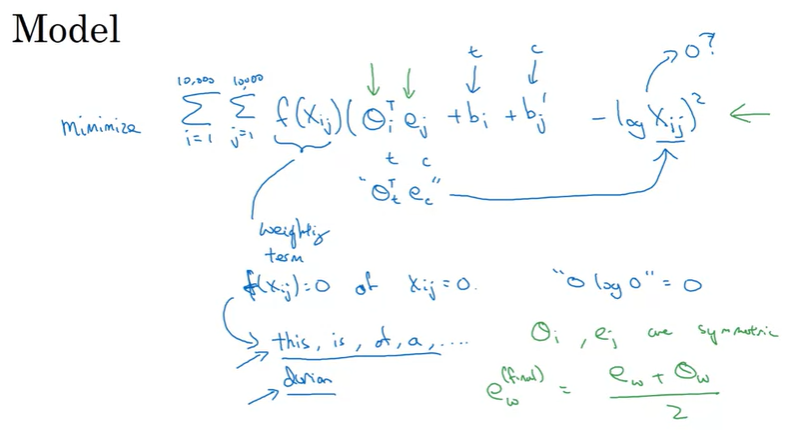 Model
t c 0?
minimize 10,000 Σ i=1 10,000 Σ j=1 f(Xij)(Θiᵀ ej + bi + bj' − log Xij)²
t c
"Θtᵀ ec"
weighting term
f(xij)=0 if xij=0. "0 log 0" = 0
this, is, of, a, .... Θi, ej are symmetric
durian
ew(final) = ew + Θw / 2